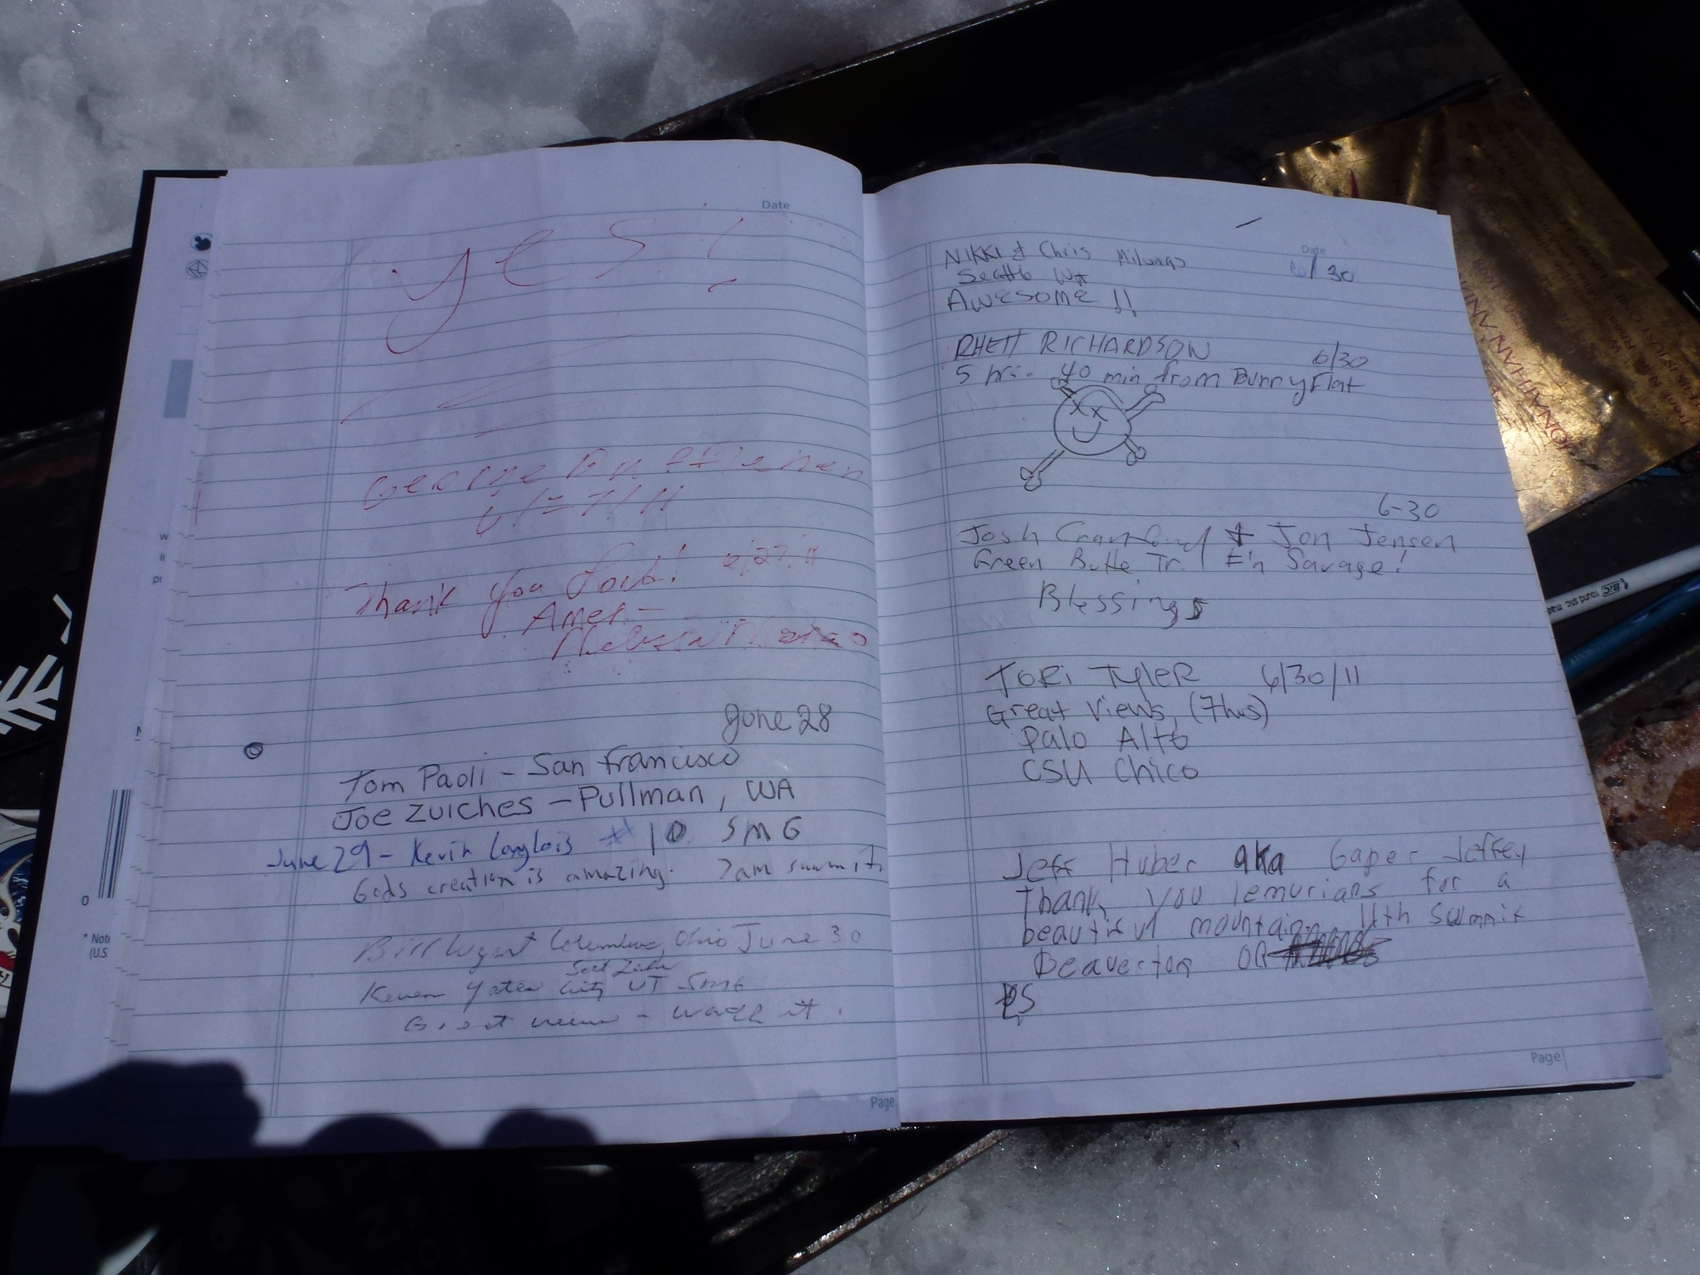 Date
yes!
George
6/27/11
Thank you Lord! 6/27/11
June 28
Tom Paoli - San Francisco
Joe Zuiches - Pullman, WA
June 29 - Kevin Langlois # 10 SMG
Gods creation is amazing. 7am summit
Bill Columbus, Ohio June 30
Salt Lake
Keven Yates City UT SMG
Great views - worth it.
Page
Date
Nikki & Chris 6/30
Seattle WA
AWESOME !!
RHETT RICHARDSON 6/30
5 hrs. 40 min from Bunny Flat
6-30
Josh Crawford & Jon Jensen
Green Butte Tr. F'n Savage!
Blessings
TORI TYLER 6/30/11
Great Views, (7hrs)
Palo Alto
CSU Chico
Jeff Huber aka Gaper Jeffey
Thank you lemurians for a
beautiful mountain 11th summit
Beaverton OR
PS
Page